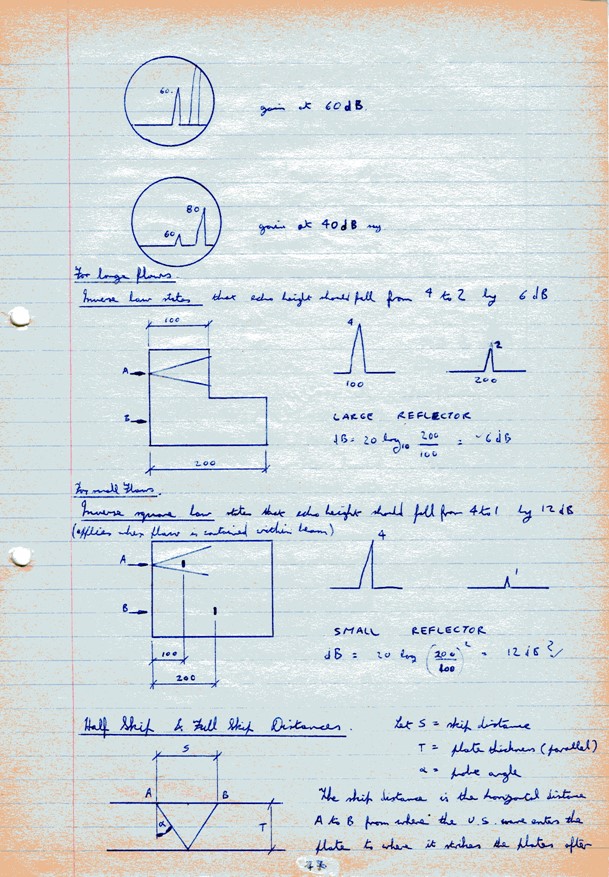 60.
gain at 60 dB.
80
60
gain at 40 dB
For large flaws.
Inverse Law states that echo height should fall from 4 to 2 by 6 dB
100
4
2
A
100
200
B
LARGE REFLECTOR
dB = 20 log10 200/100 = ~6 dB
200
For small Flaws.
Inverse square law states that echo height should fall from 4 to 1 by 12 dB
(applies when flaw is contained within beam)
4
A
1
B
SMALL REFLECTOR
100
dB = 20 log (200/100)² = 12 dB ?
200
Half Skip & Full Skip Distances.
Let S = skip distance
T = plate thickness (parallel)
α = probe angle
S
A B
α
T
The skip distance is the horizontal distance
A to B from where the U.S. wave enters the
plate to where it strikes the plates after